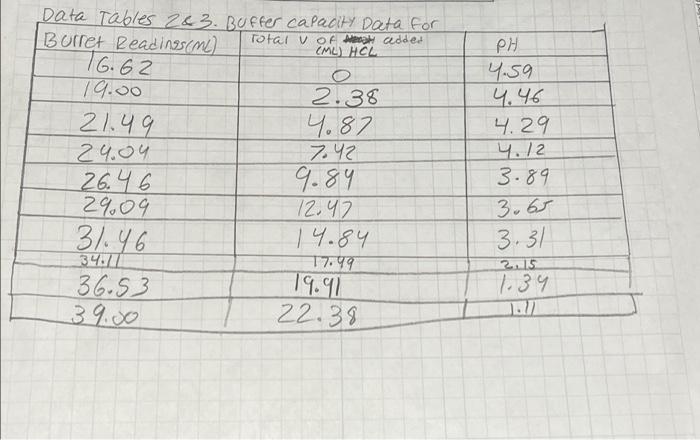 Data Tables 2&3. Buffer capacity Data for
Burret Readings(mL) Total V of added (mL) HCL PH
16.62 0 4.59
19.00 2.38 4.46
21.49 4.87 4.29
24.04 7.42 4.12
26.46 9.84 3.89
29.09 12.47 3.65
31.46 14.84 3.31
34.11 17.49 2.15
36.53 19.91 1.34
39.00 22.38 1.11